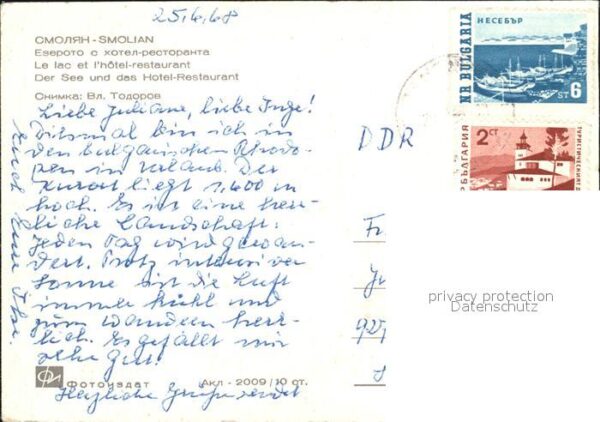 25.6.68
СМОЛЯН - SMOLIAN
Езерото с хотел-ресторанта
Le lac et l'hôtel-restaurant
Der See und das Hotel-Restaurant
Снимка: Вл. Тодоров
Liebe Juliane, liebe Inge!
Diesmal bin ich in
den bulgarischen Rhodo-
pen in Urlaub. Der
Kurort liegt 1.400 m
hoch. Es ist eine herr-
liche Landschaft.
Jeden Tag wird gewan-
dert. Trotz intensiver
Sonne ist die Luft
immer kühl und
zum Wandern herr-
lich. Es gefällt mir
sehr gut!
Herzliche Grüße sendet
Euch Eure
Фотоиздат
Акл - 2009/10 ст.
DDR
Fr
925
НЕСЕБЪР
NR BULGARIA
ST 6
2 СТ
БЪЛГАРИЯ
ТУРИСТИЧЕСКИЯТ
privacy protection
Datenschutz